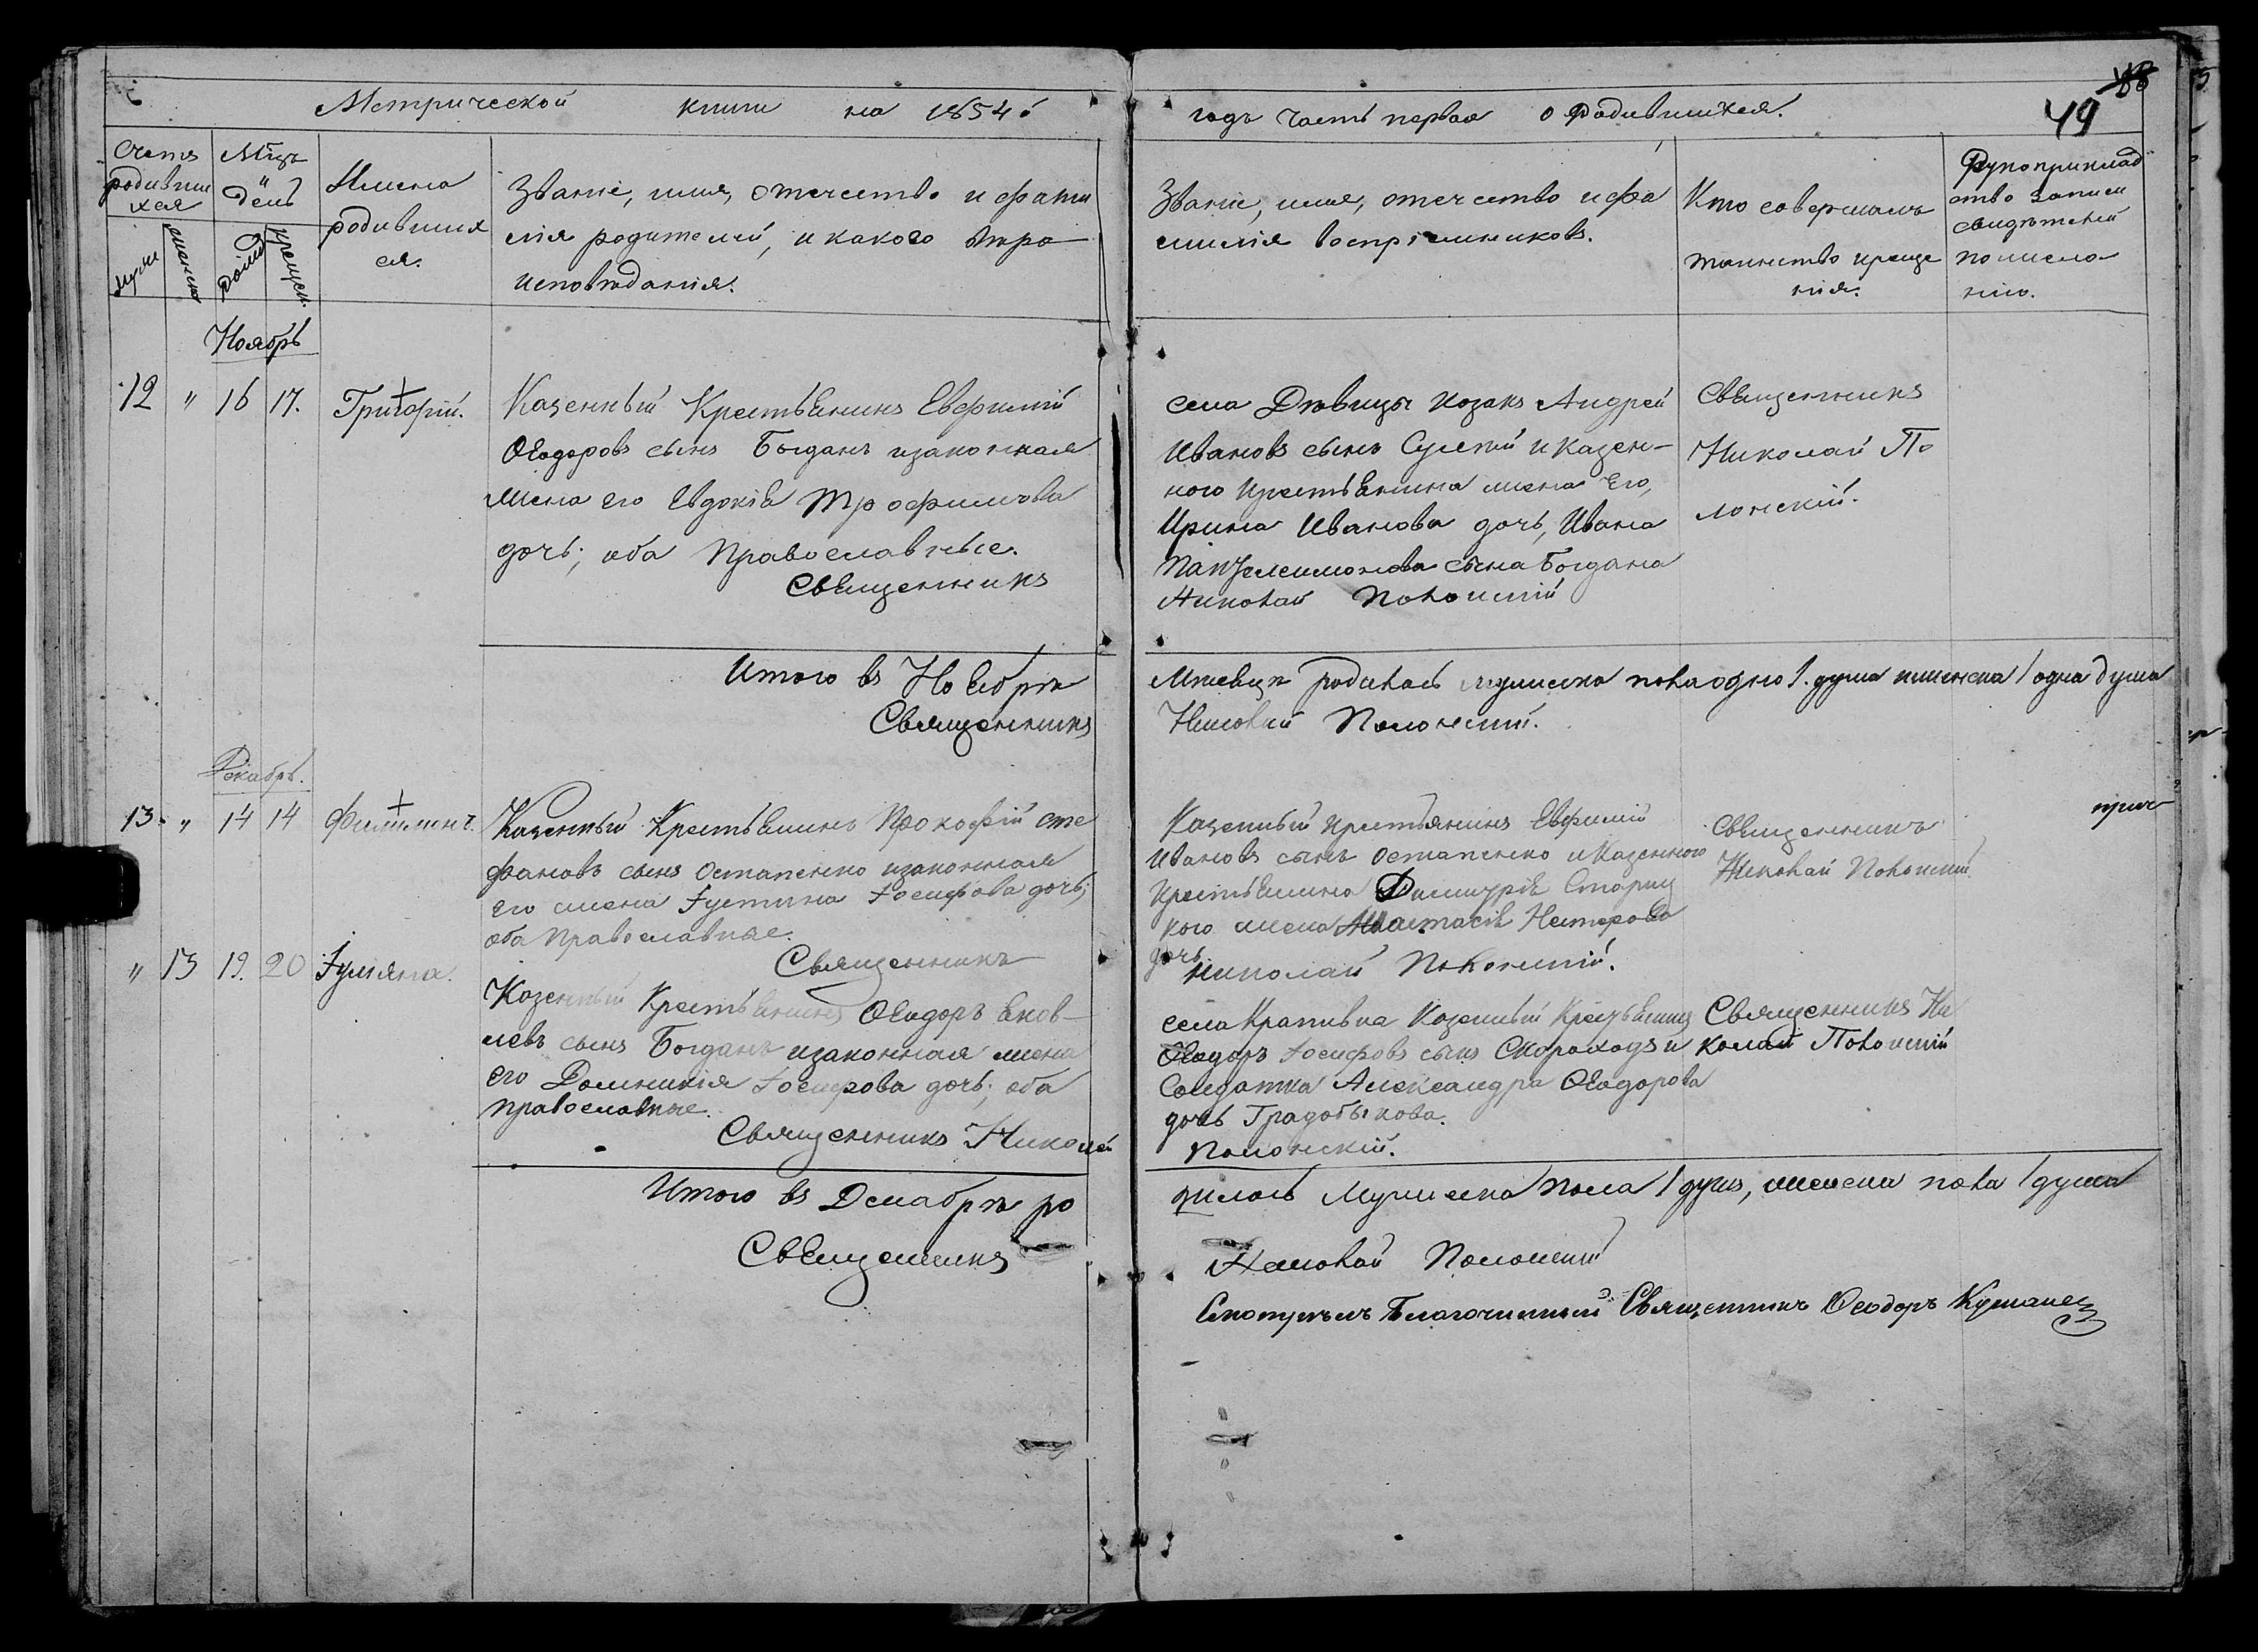 Метрической книги на 1854й
годъ часть первая о родившихся.
48
49
Счетъ родивши хся
Мужс
женск
Мѣсцъ и день
Рожд
Крещен.
Имена родивших ся.
Званіе, имя, отечество и фами
лія родителей, и какого вѣро
исповѣданія.
Званіе, имя, отечество и фа
милія воспріемниковъ.
Кто совершалъ
таинство креще
нія.
Рукоприклад
ство записи
свидѣтелей
по жела
нію.
Ноябрь
12 " 16 17. Григорій.
Казенный Крестьянинъ Евфимій
Ѳеодоровъ сынъ Богданъ и законная
жена его Евдокія Трофимова
дочь; оба Православные.
Священникъ
села Дѣвицы козакъ Андрей
Ивановъ сынъ и казен-
ного крестьянина жена его,
Ирина Иванова дочь, Ивана
Пантелеимонова сына Богдана
Николай Полонскій
Священникъ
Николай По
лонскій.
Итого въ Ноябрѣ
Священникъ
Мѣсяцѣ родилось мужеска пола одно 1. душа и женска 1 одна душа
Николай Полонский.
Декабрь.
13. " 14 14 Филимонъ.
Казенный Крестьянинъ Прокофій Сте
фановъ сынъ Остапенко и законная
его жена Іустина Іосифова дочь;
оба православные.
Священникъ
Казенный крестьянинъ Евфимій
Ивановъ сынъ Остапенко и Казенного
Крестьянина Димитрія Стариц
кого жена Анастасія Нестерова
дочь
Николай Полонскій.
Священникъ
Николай Полонский
" 13 19. 20 Іуліяна.
Казенный Крестьянинъ Ѳеодоръ Яков-
левъ сынъ Богданъ и законная жена
его Домникія Іосифова дочь; оба
православные.
Священникъ Николай
села Крапивна Казенный Крестьянинъ
Ѳеодоръ Іосифовъ сынъ Скороходъ и
Солдатка Александра Ѳеодорова
дочь Градобыкова.
Полонскій.
Священникъ Ни
колай Полонскій
Итого въ Декабрѣ ро
Священникъ
дилось Мужеска пола 1 душъ, женска пола 1 душа
Николай Полонский
Смотрѣлъ Благочинный Священникъ Ѳеодоръ